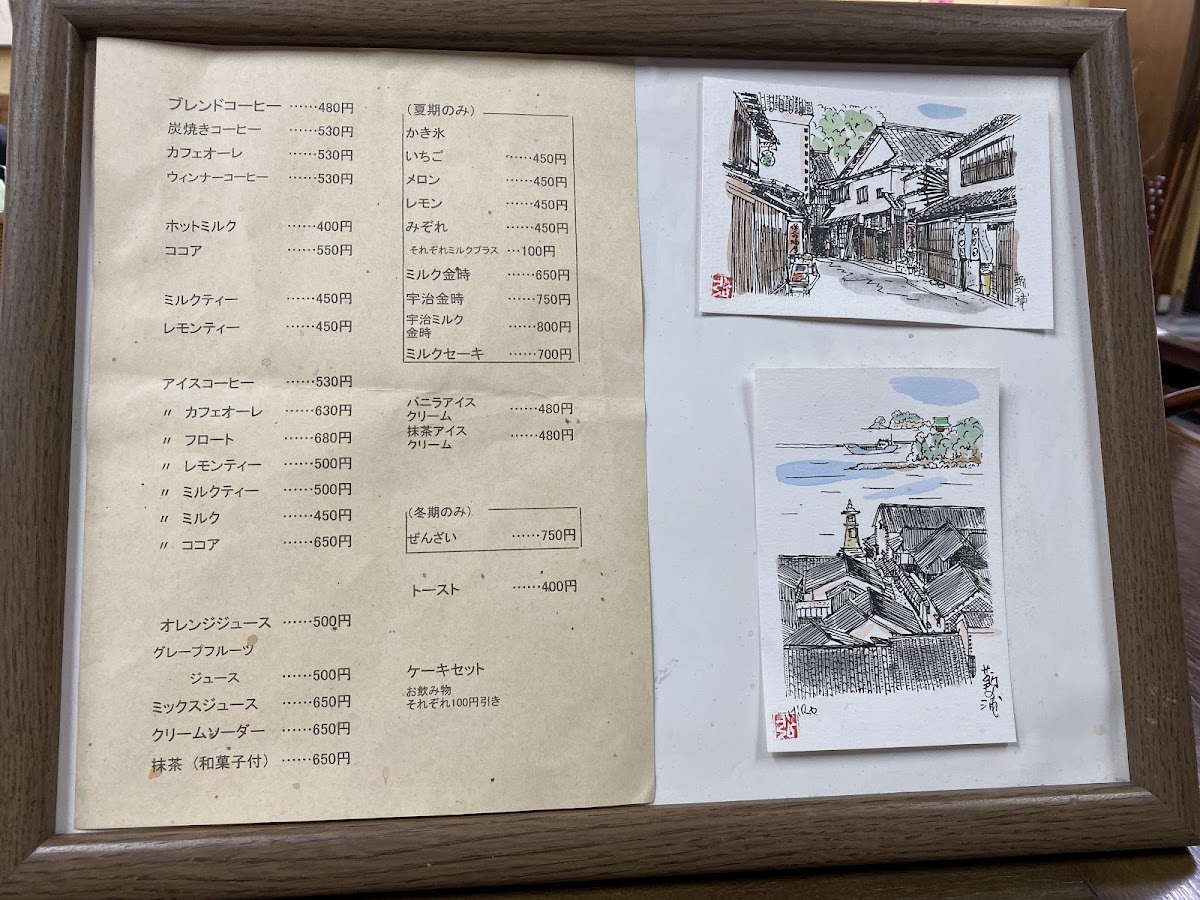 ブレンドコーヒー ……480円
炭焼きコーヒー ……530円
カフェオーレ ……530円
ウィンナーコーヒー ……530円
ホットミルク ……400円
ココア ……550円
ミルクティー ……450円
レモンティー ……450円
アイスコーヒー ……530円
〃 カフェオーレ ……630円
〃 フロート ……680円
〃 レモンティー ……500円
〃 ミルクティー ……500円
〃 ミルク ……450円
〃 ココア ……650円
オレンジジュース ……500円
グレープフルーツ
ジュース ……500円
ミックスジュース ……650円
クリームソーダー ……650円
抹茶（和菓子付） ……650円
（夏期のみ）
かき氷
いちご ……450円
メロン ……450円
レモン ……450円
みぞれ ……450円
それぞれミルクプラス …100円
ミルク金時 ……650円
宇治金時 ……750円
宇治ミルク
金時 ……800円
ミルクセーキ ……700円
バニラアイス
クリーム ……480円
抹茶アイス
クリーム ……480円
（冬期のみ）
ぜんざい ……750円
トースト ……400円
ケーキセット
お飲み物
それぞれ100円引き
鞆の浦
HIRO